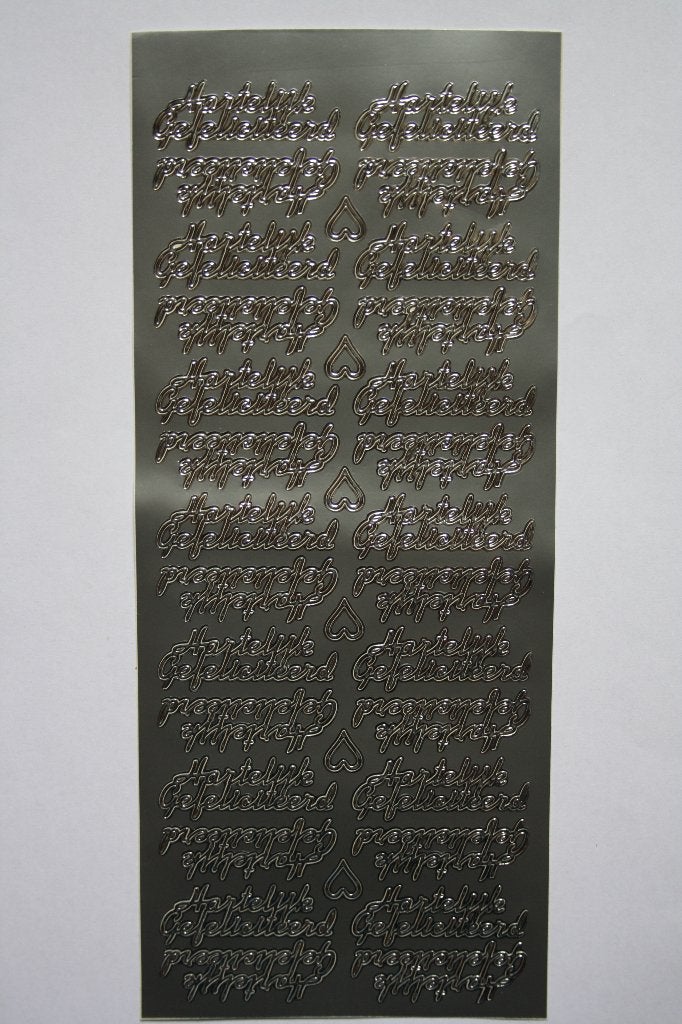 Hartelijk Hartelijk
Gefeliciteerd Gefeliciteerd
Hartelijk Hartelijk
Gefeliciteerd Gefeliciteerd
Hartelijk Hartelijk
Gefeliciteerd Gefeliciteerd
Hartelijk Hartelijk
Gefeliciteerd Gefeliciteerd
Hartelijk Hartelijk
Gefeliciteerd Gefeliciteerd
Hartelijk Hartelijk
Gefeliciteerd Gefeliciteerd
Hartelijk Hartelijk
Gefeliciteerd Gefeliciteerd
Hartelijk Hartelijk
Gefeliciteerd Gefeliciteerd
Hartelijk Hartelijk
Gefeliciteerd Gefeliciteerd
Hartelijk Hartelijk
Gefeliciteerd Gefeliciteerd
Hartelijk Hartelijk
Gefeliciteerd Gefeliciteerd
Hartelijk Hartelijk
Gefeliciteerd Gefeliciteerd
Hartelijk Hartelijk
Gefeliciteerd Gefeliciteerd
Hartelijk Hartelijk
Gefeliciteerd Gefeliciteerd